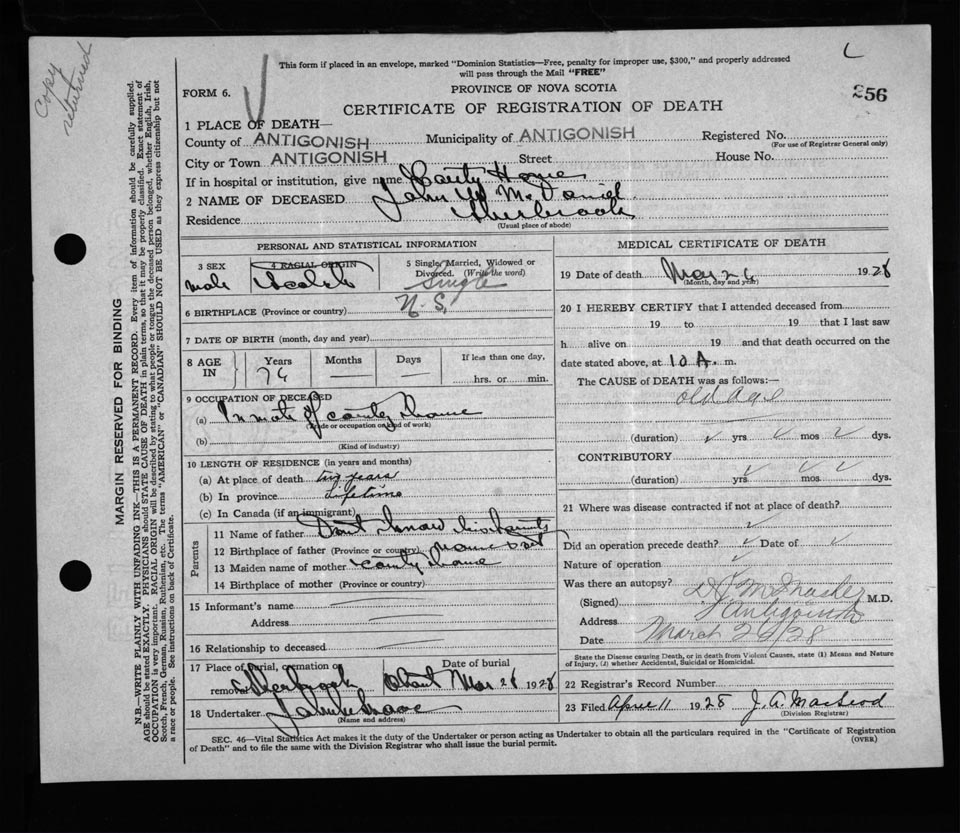 Copy
returned
L
This form if placed in an envelope, marked "Dominion Statistics—Free, penalty for improper use, $300," and properly addressed
will pass through the Mail "FREE"
FORM 6.
PROVINCE OF NOVA SCOTIA
256
CERTIFICATE OF REGISTRATION OF DEATH
1 PLACE OF DEATH—
County of ANTIGONISH Municipality of ANTIGONISH Registered No.
(For use of Registrar General only)
City or Town ANTIGONISH Street House No.
If in hospital or institution, give name County Home
2 NAME OF DECEASED John McDaniel
Residence Sherbrooke
(Usual place of abode)
PERSONAL AND STATISTICAL INFORMATION
3 SEX male
4 RACIAL ORIGIN Scotch
5 Single, Married, Widowed or
Divorced. (Write the word)
Single
6 BIRTHPLACE (Province or country) N. S.
7 DATE OF BIRTH (month, day and year)
8 AGE IN Years Months Days If less than one day,
76 — — hrs. or min.
9 OCCUPATION OF DECEASED
(a) Inmate of county home
(Trade or occupation or kind of work)
(b)
(Kind of industry)
10 LENGTH OF RESIDENCE (in years and months)
(a) At place of death years
(b) In province Lifetime
(c) In Canada (if an immigrant)
Parents
11 Name of father Dont know his parents
12 Birthplace of father (Province or country) name
13 Maiden name of mother county home
14 Birthplace of mother (Province or country)
15 Informant's name
Address
16 Relationship to deceased
17 Place of burial, cremation or
removal Sherbrook
Date of burial
about Mar 28 1928
18 Undertaker
(Name and address)
MEDICAL CERTIFICATE OF DEATH
19 Date of death Mar 26 1928
(Month, day and year)
20 I HEREBY CERTIFY that I attended deceased from
19 to 19 that I last saw
h alive on 19 and that death occurred on the
date stated above, at 10 A. m.
The CAUSE of DEATH was as follows:—
Old Age
(duration) yrs mos dys.
CONTRIBUTORY
(duration) yrs mos dys.
21 Where was disease contracted if not at place of death?
Did an operation precede death? Date of
Nature of operation
Was there an autopsy?
(Signed) M.D.
Address Antigonish
Date March 26/28
State the Disease causing Death, or in death from Violent Causes, state (1) Means and Nature
of Injury, (2) whether Accidental, Suicidal or Homicidal.
22 Registrar's Record Number
23 Filed April 11 1928 J. A. MacLeod
(Division Registrar)
SEC. 46—Vital Statistics Act makes it the duty of the Undertaker or person acting as Undertaker to obtain all the particulars required in the "Certificate of Registration
of Death" and to file the same with the Division Registrar who shall issue the burial permit.
(OVER)
MARGIN RESERVED FOR BINDING
N.B.—WRITE PLAINLY WITH UNFADING INK—THIS IS A PERMANENT RECORD. Every item of information should be carefully supplied.
AGE should be stated EXACTLY. PHYSICIANS should STATE CAUSE OF DEATH in plain terms, so that it may be properly classified. Exact statement of
OCCUPATION is very important. RACIAL ORIGIN will be described by stating to what people or tongue the deceased person belonged, whether English, Irish,
Scotch, French, German, Russian, Ruthenian, etc. The terms "AMERICAN" or "CANADIAN" SHOULD NOT BE USED as they express citizenship but not
a race or people. See instructions on back of Certificate.